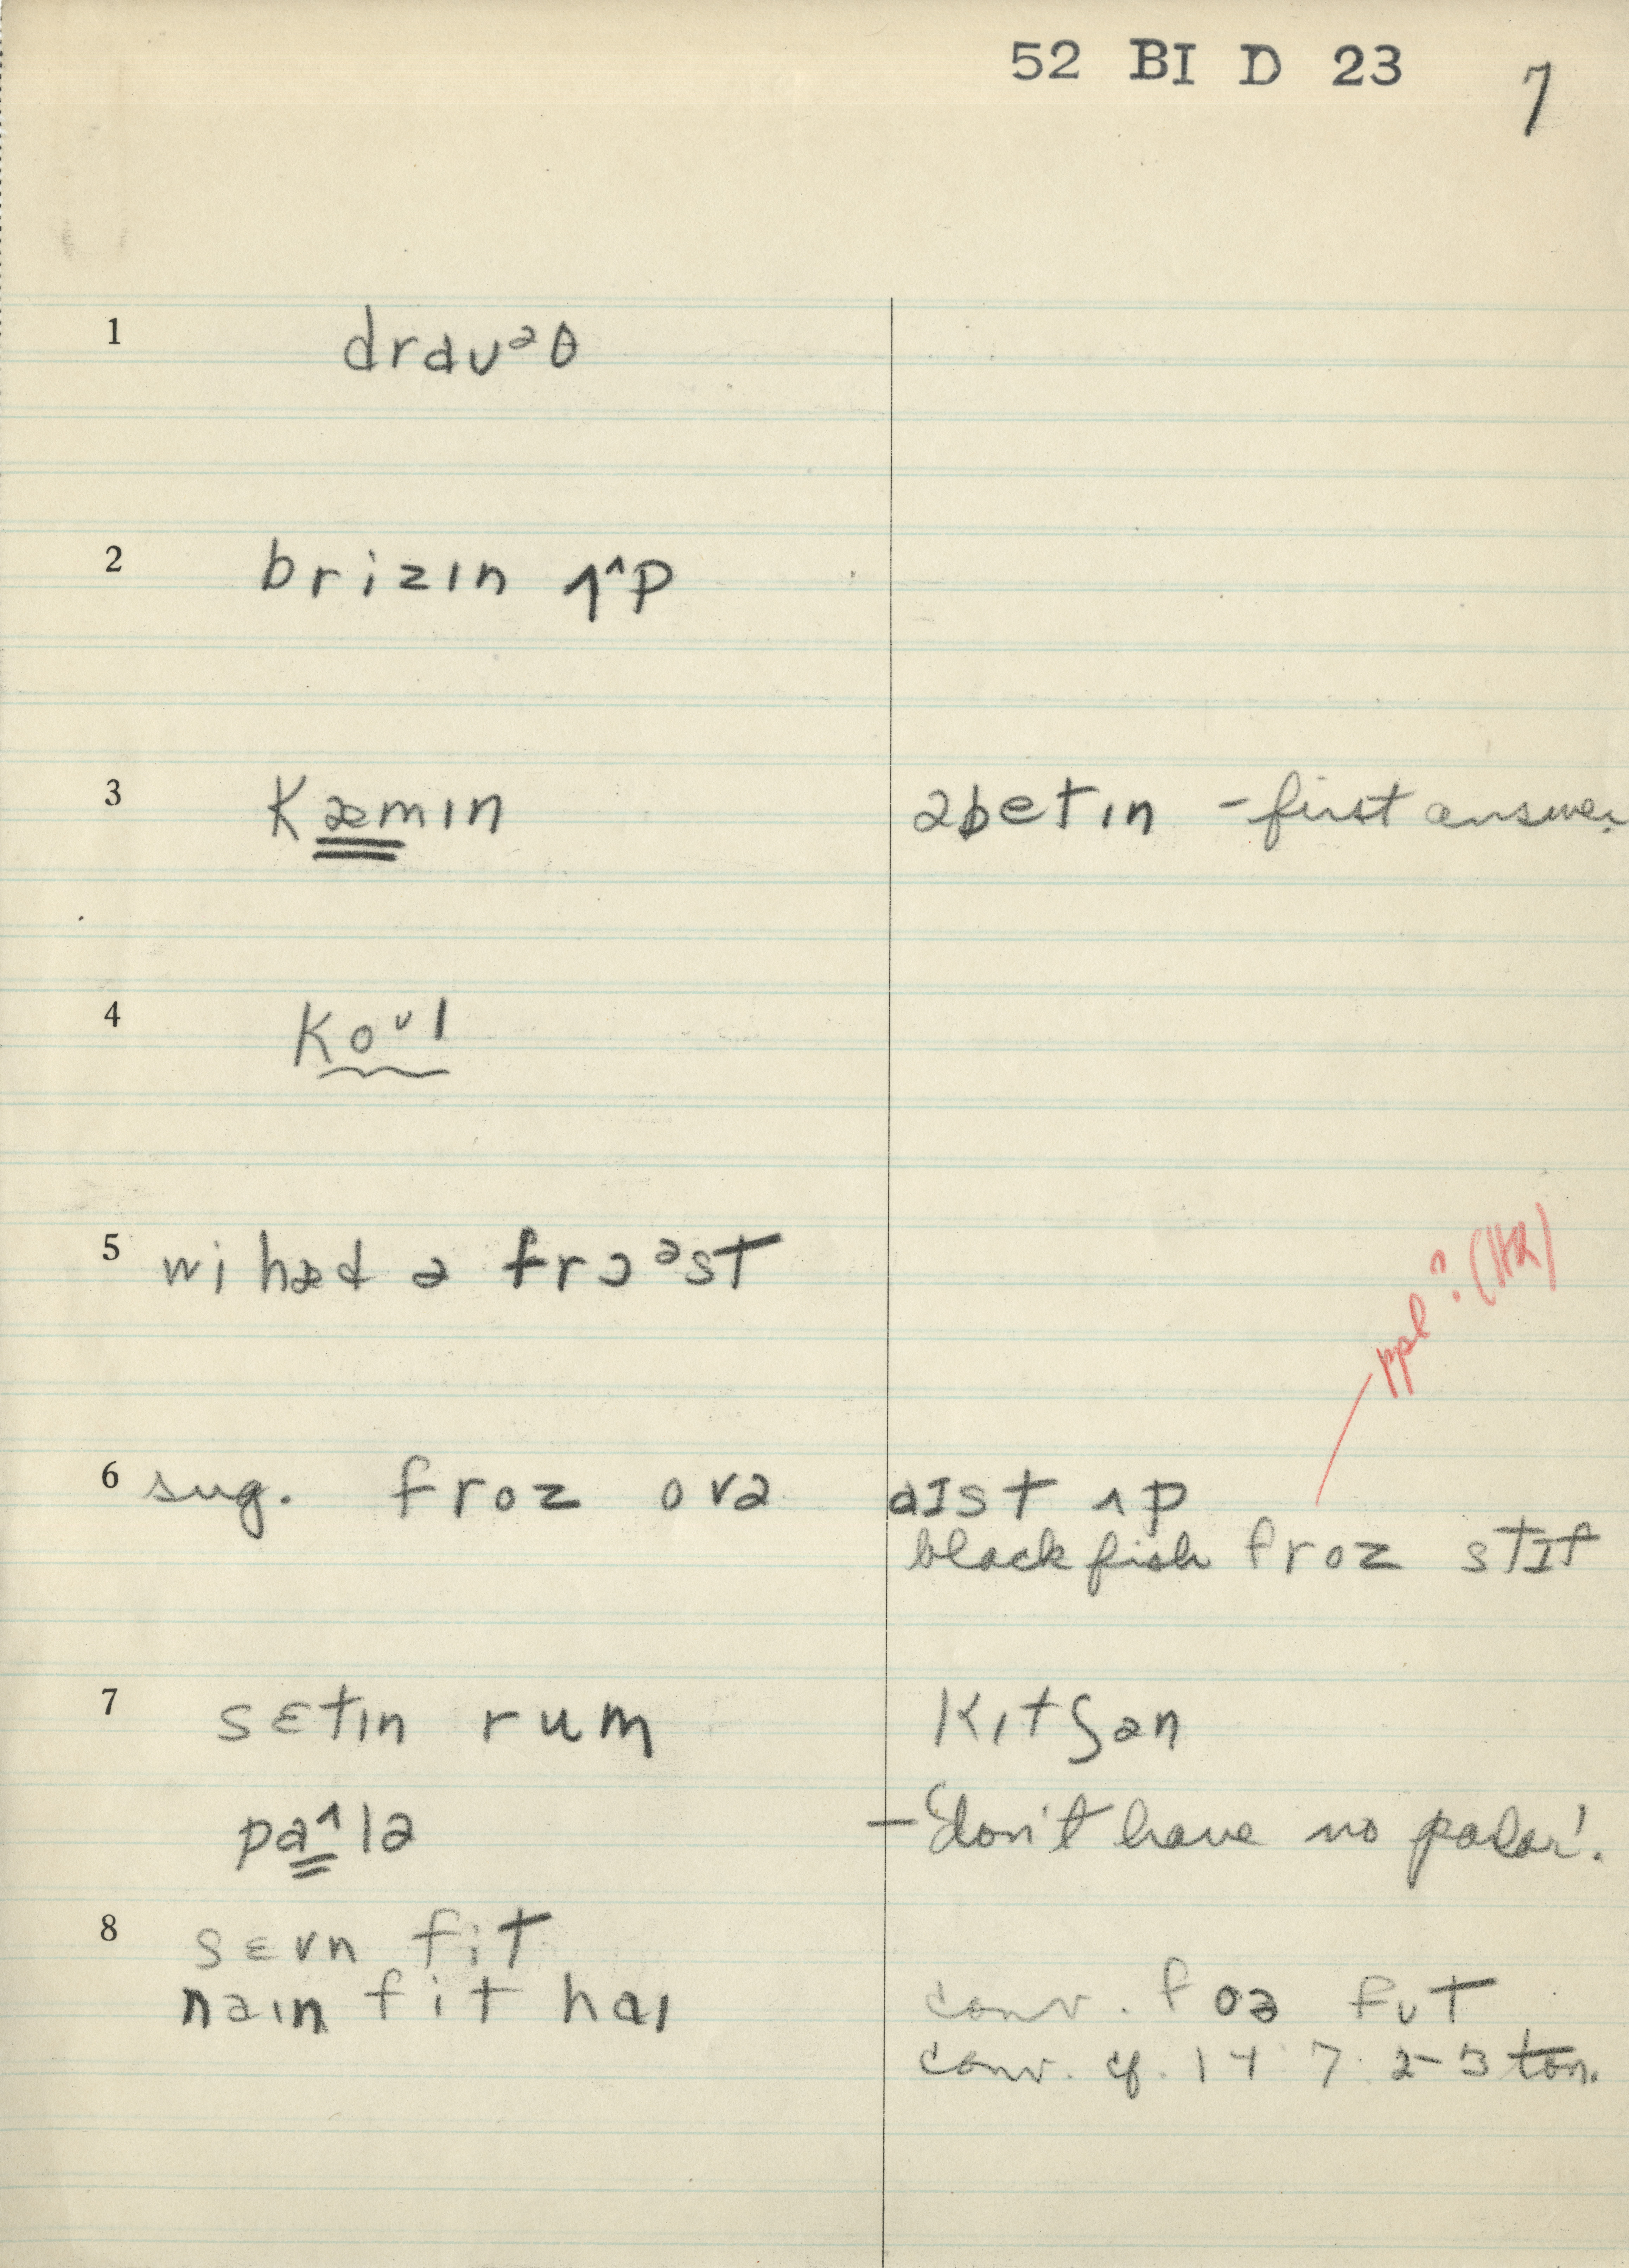 52 BI D 23 7
1 draʊᵊθ
2 brizɪn ʌ^p
3 kæmɪn əbetɪn - first answer
4 koᶷl
5 wi hæd ə frɔᵊst
ppl? (HR)
6 sug. froz ovə aɪst ʌp
blackfish froz stɪf
7 sɛtɪn rum kɪtʃən
paˆlə - 'don't have no parlor'.
8 sɛvn fit
naɪn fit haɪ conv. foə fʊt
conv. cf. 14 7. 2-3 ton.